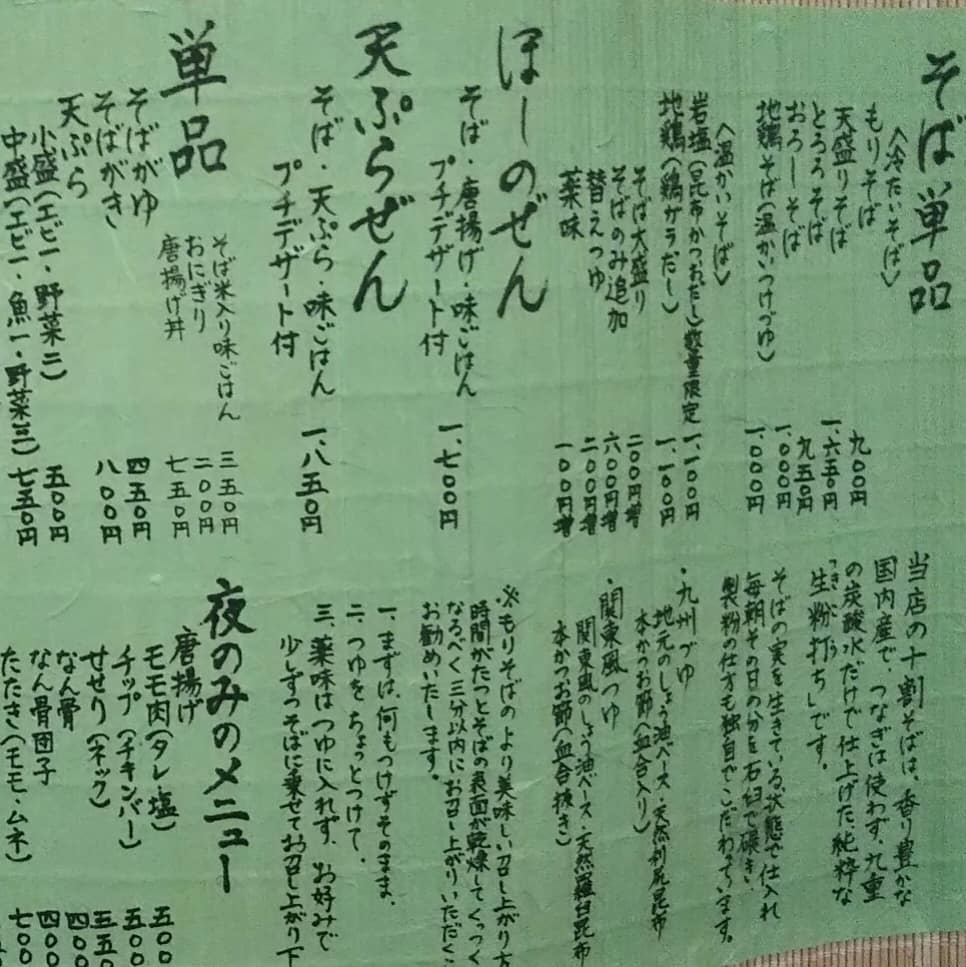 そば単品
〈冷たいそば〉
もりそば 九〇〇円
天盛りそば 一、六五〇円
とろろそば 九五〇円
おろしそば 一、〇〇〇円
地鶏そば(温かいつけづゆ) 一、〇〇〇円
〈温かいそば〉
岩塩(昆布かつおだし)数量限定 一、一〇〇円
地鶏(鶏ガラだし) 一、一〇〇円
そば大盛り 二〇〇円増
そばのみ追加 六〇〇円増
替えつゆ 二〇〇円増
薬味 一〇〇円増
ほしのぜん
そば・唐揚げ・味ごはん 一、七〇〇円
プチデザート付
天ぷらぜん
そば・天ぷら・味ごはん 一、八五〇円
プチデザート付
単品
そば米入り味ごはん 三五〇円
おにぎり 二〇〇円
唐揚げ丼 七五〇円
そばがゆ 四五〇円
そばがき 八〇〇円
天ぷら
小盛(エビ一・野菜二) 五〇〇円
中盛(エビ一・魚一・野菜三) 七五〇円
当店の十割そばは、香り豊かな
国内産で、つなぎは使わず、九重
の炭酸水だけで仕上げた純粋な
「生粉打ち」です。
きこう
そばの実を生きている状態で仕入れ
毎朝その日の分を石臼で碾き、
製粉の仕方も独自でこだわっています。
・九州づゆ
地元のしょう油ベース・天然利尻昆布
本かつお節(血合入り)
・関東風つゆ
関東風のしょう油ベース・天然羅臼昆布
本かつお節(血合抜き)
※もりそばのより美味しい召し上がり方
時間がたつとそばの表面が乾燥してくっつく
なるべく三分以内にお召し上がりいただく
お勧めいたします。
一、まずは、何もつけずそのまま、
二、つゆをちょっとつけて、
三、薬味はつゆに入れず、お好みで
少しずつそばに乗せてお召し上がり下
夜のみのメニュー
唐揚げ
モモ肉(タレ・塩) 五〇〇
チップ(チキンバー) 五〇〇
せせり(ネック) 五五〇
なん骨 四〇〇
なん骨団子 四〇〇
たたき(モモ・ムネ) 七〇〇